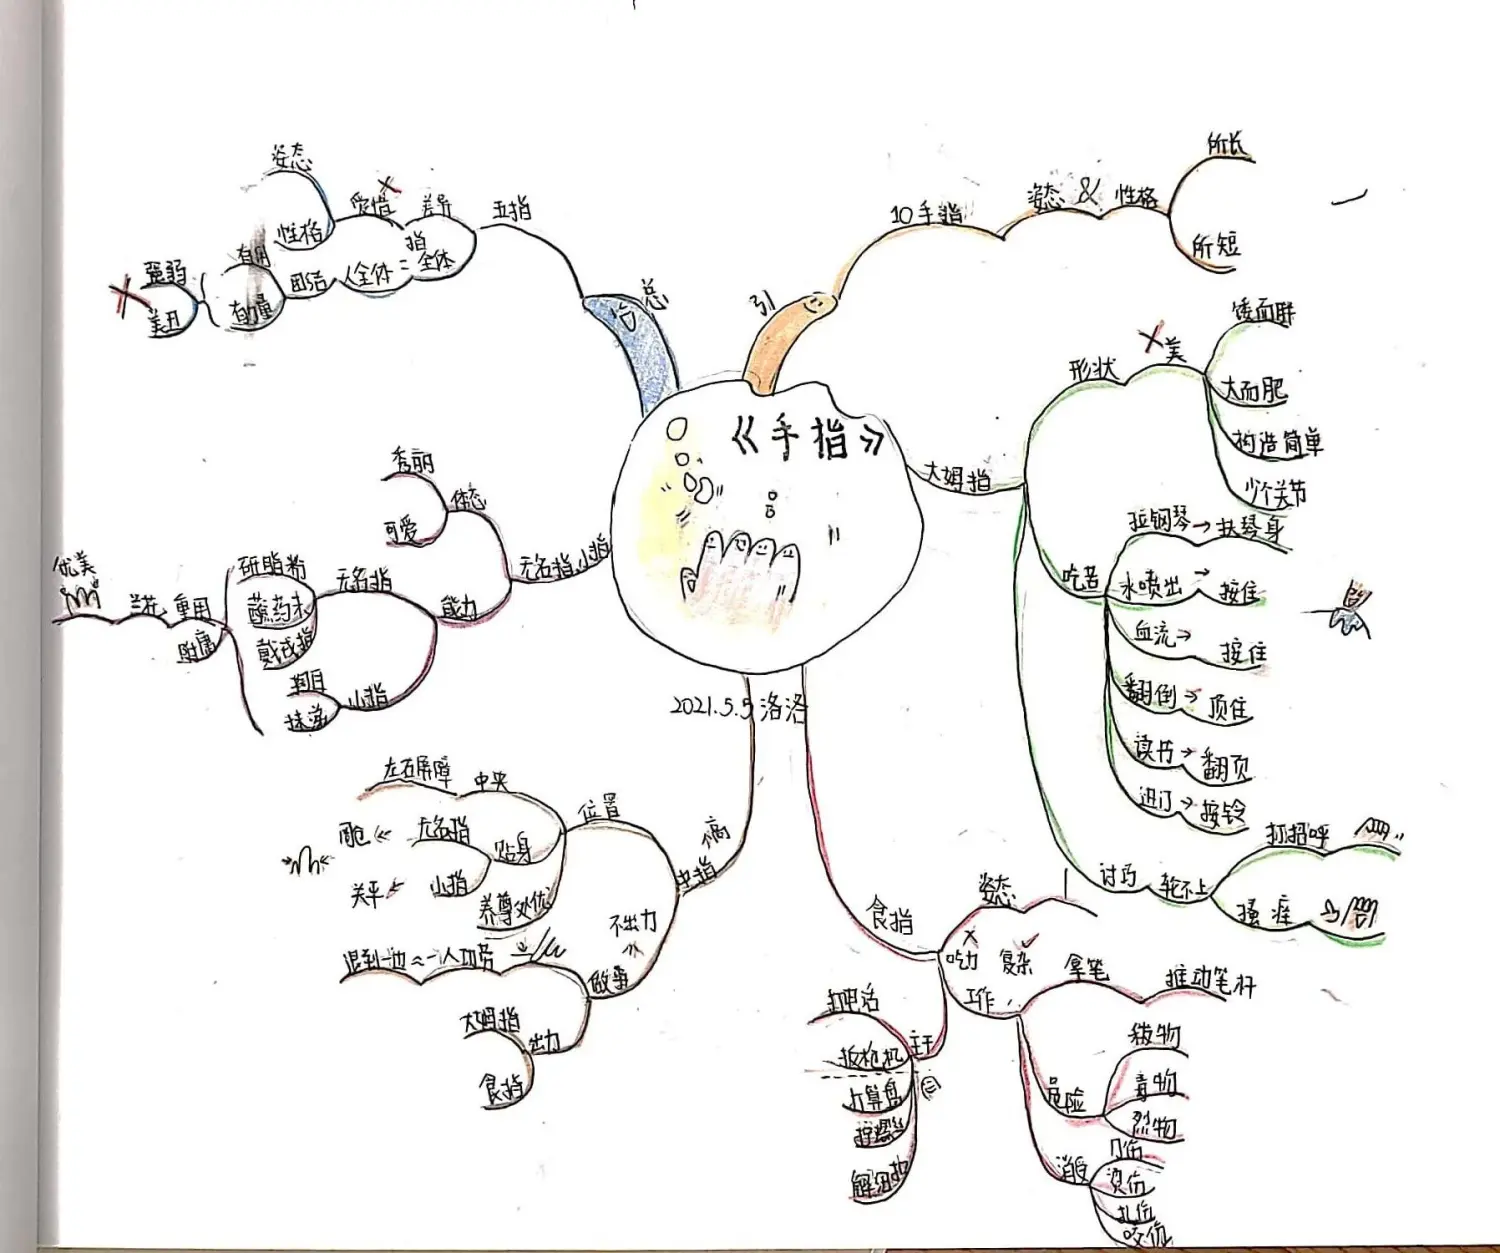 《手指》
2021.5.5 洛洛
引
10手指
姿态 & 性格
所长
所短
大姆指
形状
美
矮而胖
大而肥
构造简单
少个关节
吃苦
拉钢琴→扶琴身
水喷出→按住
血流→按住
翻倒→顶住
读书→翻页
进门→按铃
讨巧
轮不上
打招呼
搔痒
食指
姿态
吃力
复杂
工作
拿笔
推动笔杆
危险
秽物
毒物
烈物
消受
刀伤
烫伤
扎伤
咬伤
主干
打电话
扳枪机
打算盘
拧螺丝
解纽扣
中指
高
位置
中央
左右屏障
贴身
无名指
小指
关平
养尊处优
不出力
做事
一人功劳
退到一边
出力
大姆指
食指
无名指小指
体态
秀丽
可爱
能力
无名指
研脂粉
蘸药末
戴戒指
小指
抹泪
重用
附庸
兰花
优美
总
五指
差异
爱惜
姿态
性格
指全体
=
人全体
团结
有用
有力量
强弱
美丑